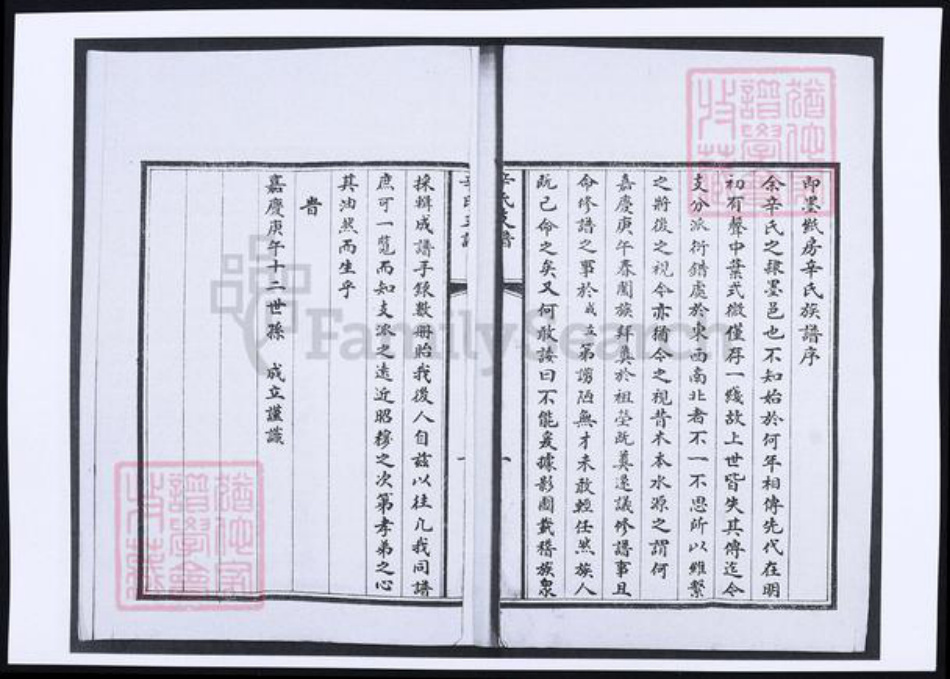 即墨紙房辛氏族譜序
余辛氏之隸墨邑也不知始於何年相傳先代在明
初有聲中葉式微僅存一綫故上世皆失其傳迄今
支分派衍錯處於東西南北者不一不思所以維繫
之將後之視今亦猶今之視昔木本水源之謂何
嘉慶庚午春闔族拜奠於祖塋既奠遂議修譜事且
命修譜之事於成立第謭陋無才未敢輕任然族人
既已命之矣又何敢諉曰不能爰據影圖載稽族衆
辛氏支譜
一
採輯成譜手錄數冊貽我後人自茲以往凡我同譜
庶可一覽而知支派之遠近昭穆之次第孝弟之心
其油然而生乎
旹
嘉慶庚午十二世孫 成立謹識
FamilySearch